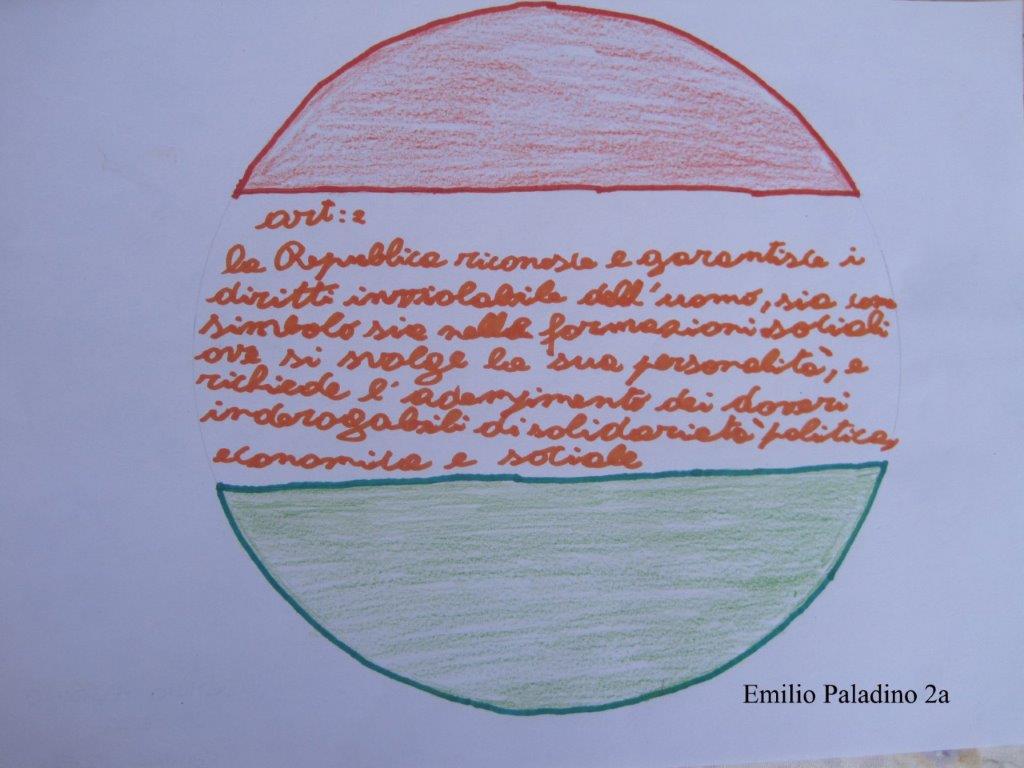 art: 2
la Repubblica riconosce e garantisce i
diritti inviolabile dell'uomo, sia come
simbolo sia nelle formazioni sociali
ove si svolge la sua personalità, e
richiede l'adempimento dei doveri
inderogabili di solidarietà politica,
economica e sociale
Emilio Paladino 2a